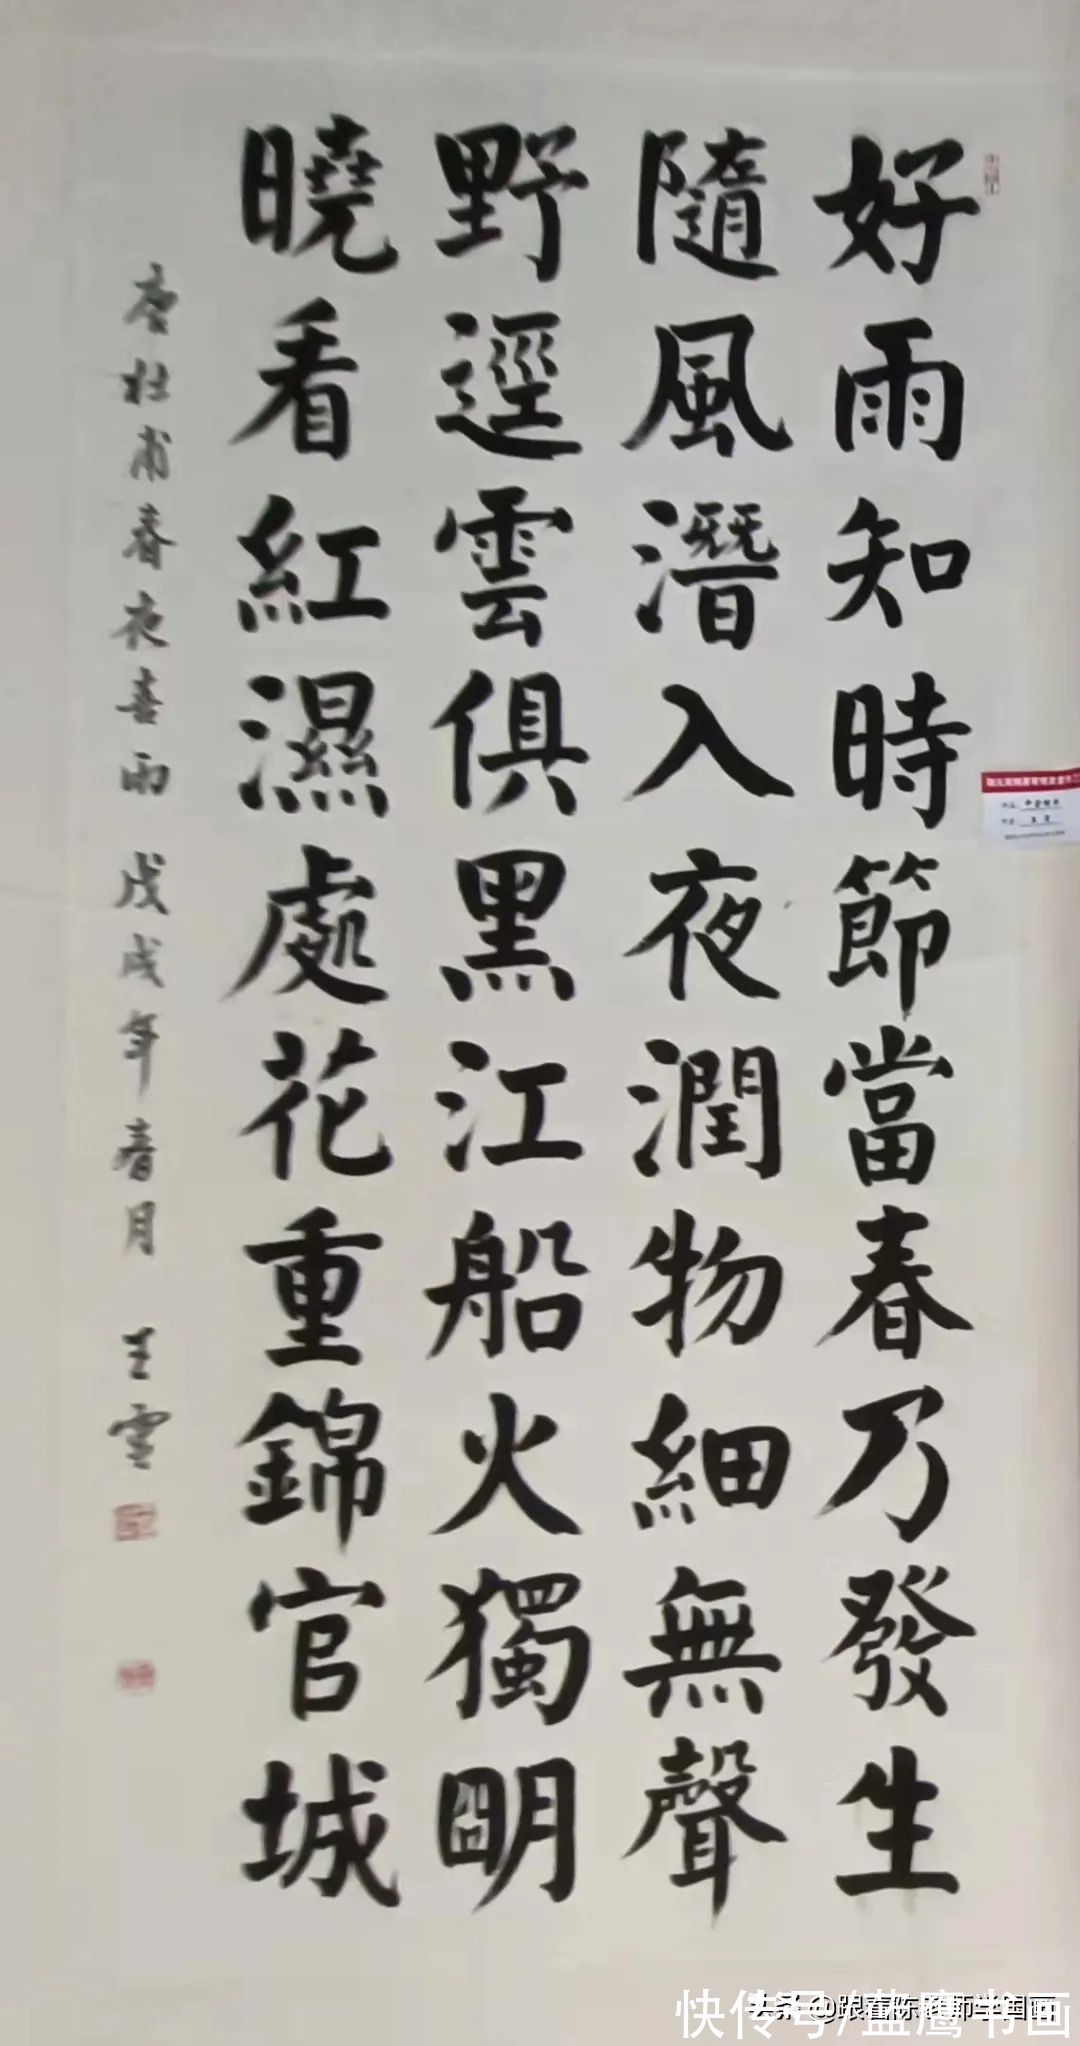 好雨知時節當春乃發生
隨風潛入夜潤物細無聲
野逕雲俱黑江船火獨明
曉看紅濕處花重錦官城
唐杜甫春夜喜雨 戊戌年春月 王雪
快传号/蓝鹰书画